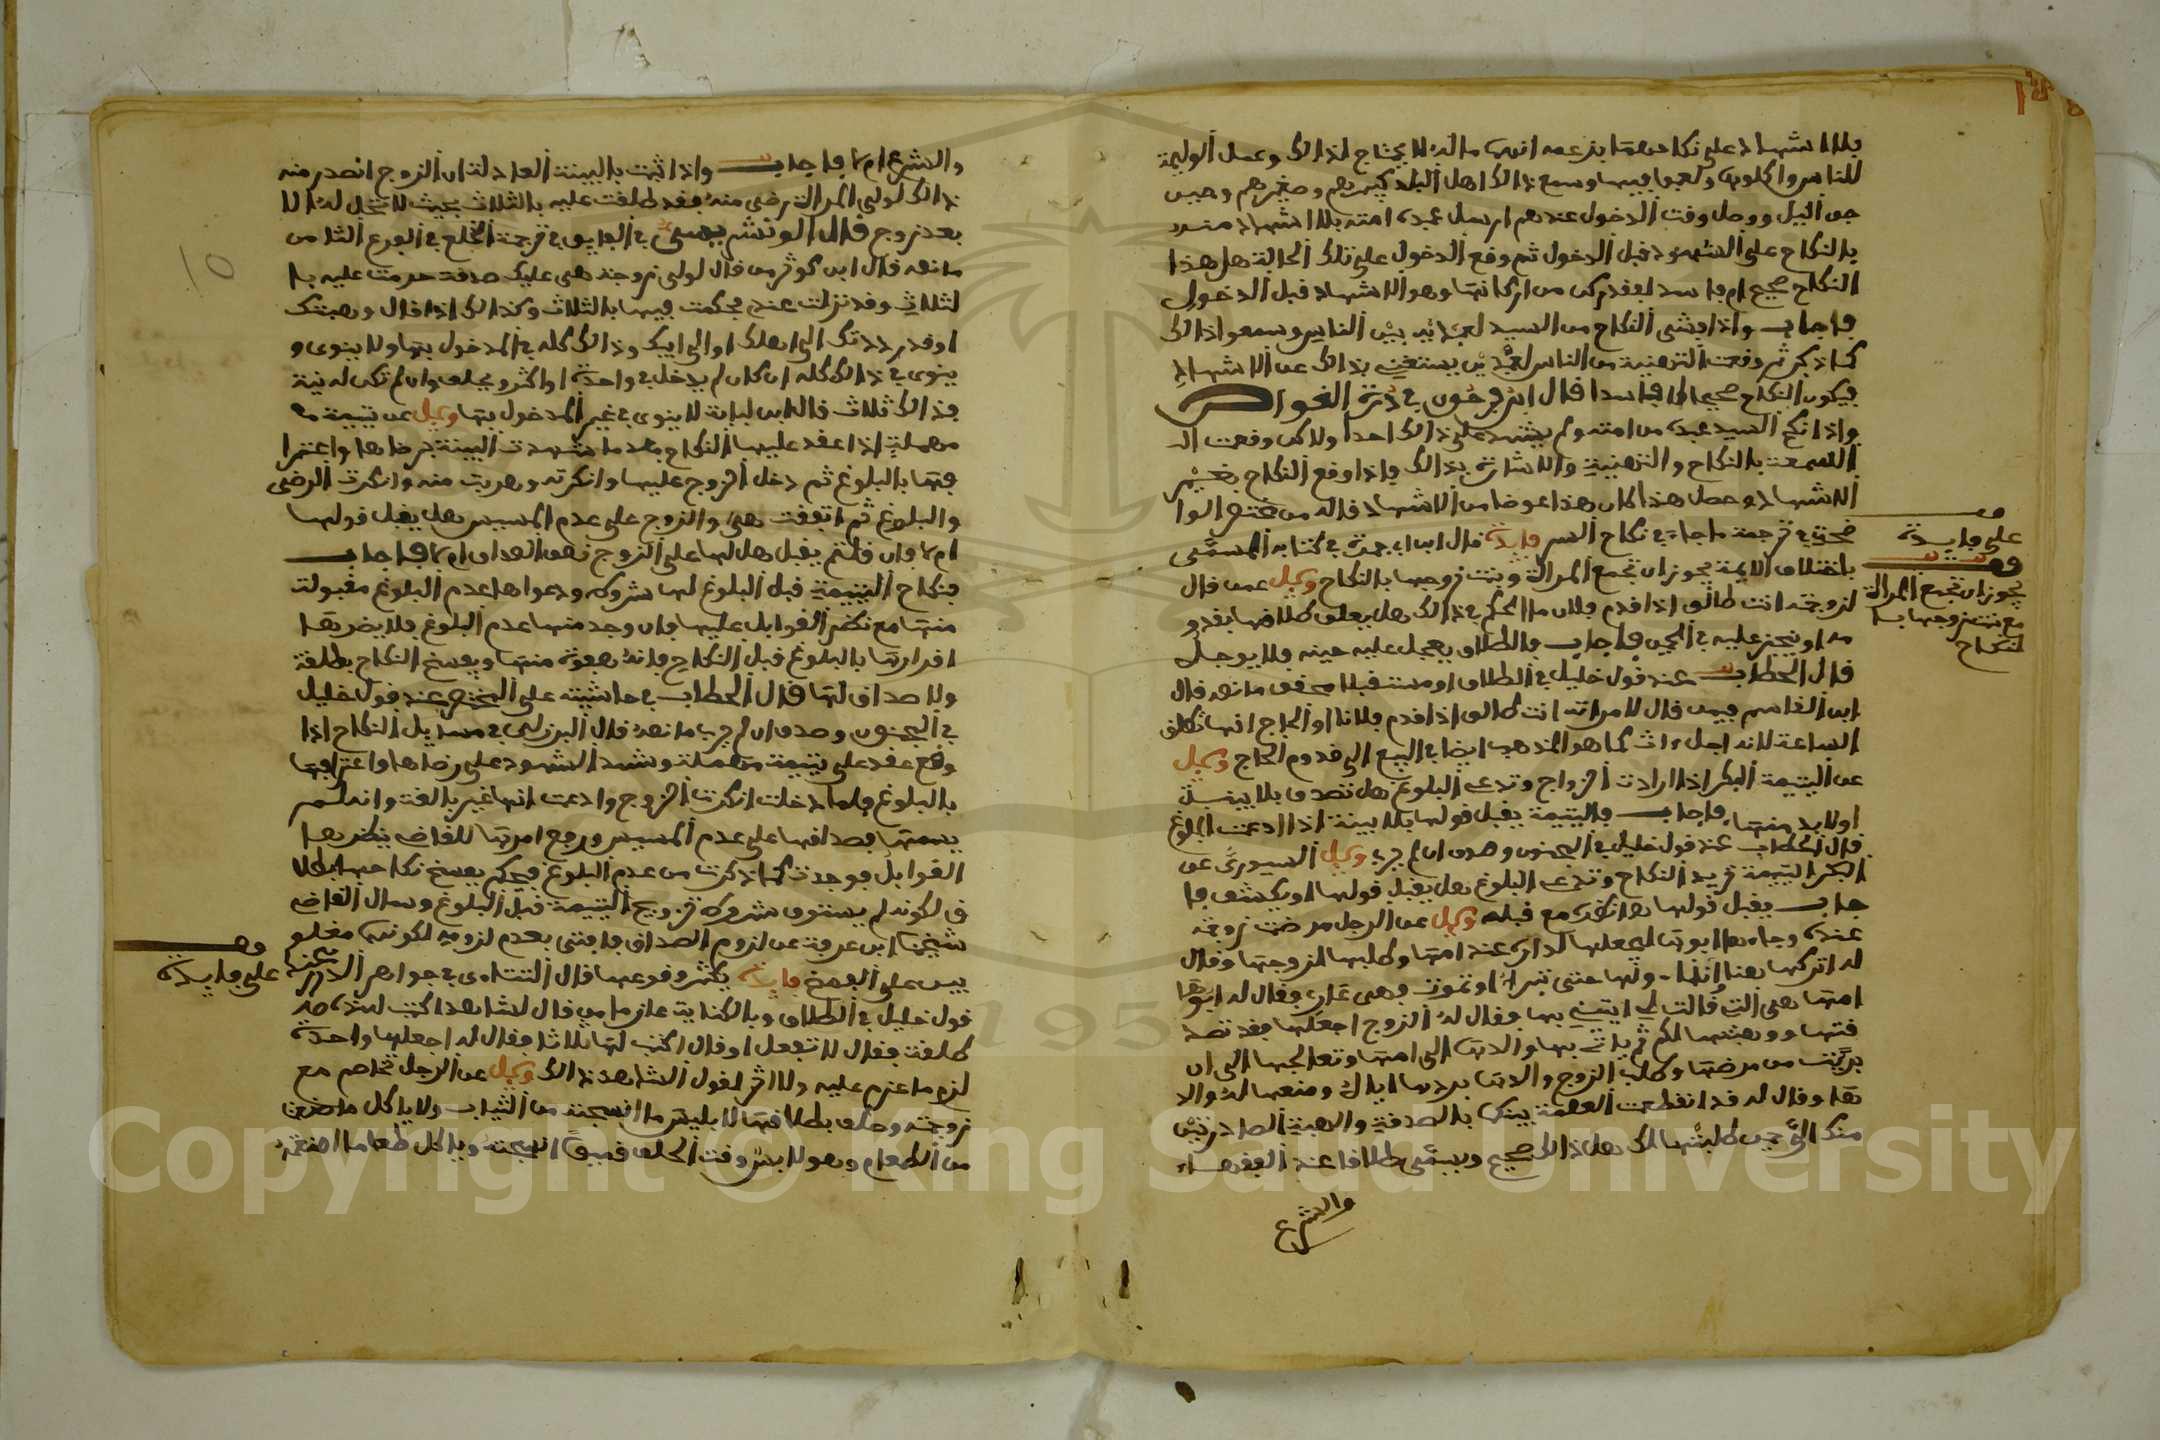 بلا اشهاد على نكاحهما بزعمه انهما ماله لا يحتاج لذالك وعمل الوليمة
للناس واكلوها ولعبوا فيها وسمع ذالك اهل البلد كبيرهم وصغيرهم وحين
جن اليل ووجل وقت الدخول عندهم ارسل عبده امته بلا اشهاد منه
بالنكاح على الشهود قبل الدخول ثم وقع الدخول على تلك الحالة هل هذا
النكاح صحيح ام فاسد لفقد ركن من اركانها وهو الاشهاد قبل الدخول
فاجاب واذا فشى النكاح من السيد لعبديه بين الناس وسمعوا ذالك
كما ذكر ثم وقعت التهنية من الناس للعبدين يستغنى بذالك عن الاشهاد
فيكون النكاح صحيحا لا فاسدا قال ابن فرحون في درة الغواص
واذا نكح السيد عبده من امته ولم يشهد على ذالك احدا ولاكن وقعت الـ
السمعة بالنكاح والتهنية والاشارة بذالك واذا وقع النكاح بغير
الاشهاد وحصل هذا كان هذا عوضا من الاشهاد قاله من مختصر الوا
ضحة في ترجمة ما جاء في نكاح السر فايدة قال ابن ابي جمرة في كتابه المسمى
باختلاف الايمة يجوز ان تجمع المراة وبنت زوجها بالنكاح وسيل عمن قال
لزوجته انت طالق اذا قدم فلان ما الحكم في ذالك هل يعلق طلاقها بقدو
مه او ينجز عليه في الحين فاجاب فالطلاق يعجل عليه حينه ولا يوجل
قال الحطاب عند قول خليل في الطلاق او مستقبلا محقق ما نصه قال
ابن القاسم فيمن قال لامراته انت طالق اذا قدم فلانا او الحاج انها تطلق
الساعة لانه اجل ءات كما هو المذهب ايضا في البيع الى قدوم الحاج وسيل
عن اليتيمة البكر اذا ارادت الزواج وتدعى البلوغ هل تصدق بلا بينة
اولا بد منها فاجاب فاليتيمة يقبل قولها بلا بينة اذا ادعت البلوغ
قال الحطاب عند قول خليل في المجنون وصدق ان لم يرب وسيل السيوري عن
البكر اليتيمة تريد النكاح وتدعى البلوغ هل يقبل قولها او يكشف فا
جاب يقبل قولها انظره مع قبله وسيل عن الرجل مرضت زوجته
عنده وجاءها ابوها ليحملها لداره عند امها وطلبها لزوجها وقال
له اتركها هنا ولها حتى تبرا او تموت وهى فقال له ابوها
امها هى التى قالت لى ايتنى بها فقال له الزوج اجعلها فقد تصد
قتها ووهبتها لكم ثم ياتى بها والدها الى امها وتعالجها الى ان
بريت من مرضها وطلب الزوج والدها بردها اياه ومنعها له والد
ها وقال له قد انقطعت العصمة بينكما بالصدقة والهبة الصادرتين
منك الي حين طلبتها لك هل ذالك صحيح ويسمى طلاقا عند الفقهاء
والشرع
قف
على فايدة
قف
يجوز ان تجمع المراة
مع بنت زوجها بـ
لنكاح
والشرع ام لا فاجاب واذا ثبت بالبينة العادلة ان الزوج انصدر منه
ذالك لولى المراة رضى منه فقد طلقت عليه بالثلاث بحيث لا تحل له الا
بعد زوج قال الونشريسى في الفايق في ترجمة الخلع في الفرع الثامن
ما نصه قال ابن كوثر من قال لولى زوجته هى عليك صدقة حرمت عليه با
لثلاث وقد نزلت عندى فحكمت فيها بالثلاث وكذالك اذا قال وهبتك
او قد رددتك الى اهلك او الى ابيك وذالك كله في المدخول بها ولا ينوى و
ينوى في ذالك كله ان كان لم يدخل في واحدة او اكثر ويحلف وان لم تكن له نية
فذالك ثلاث قال ابن لبابة لا ينوى في غير المدخول بها وسيل عن يتيمة مـ
مهملة اذا عقد عليها النكاح بعد ما شهدت البينة برضاها واعترا
فها بالبلوغ ثم دخل الزوج عليها وانكرته وهربت منه وانكرت الرضى
والبلوغ ثم اتفقت هى والزوج على عدم المسيس هل يقبل قولها
ام لا وان قلتم يقبل هل لها على الزوج نصف الصداق ام لا فاجاب
فنكاح اليتيمة قبل البلوغ لها شروك ودعواها عدم البلوغ مقبولة
منها مع نظر القوابل عليها وان وجد منها عدم البلوغ فلا يضرها
اقرارها بالبلوغ قبل النكاح فانه هفوة منها ويفسخ النكاح بطلقة
ولا صداق لها قال الحطاب في حاشيته على المختصر عند قول خليل
في المجنون وصدق ان لم يرب ما نصه قال البرزلى في مسايل النكاح اذا
وقع عقد على يتيمة مهملة وشهد الشهود على رضاها واعترافها
بالبلوغ فلما دخلت انكرت الزوج وادعت انها غير بالغة وانه لم
يمسها وصدقها على عدم المسيس ورفع امرها للقاضى ينظرها
القوابل فوجدت كما ذكرت من عدم البلوغ فحكم بفسخ نكاحها بطلا
ق لكونه لم يستوف شروط تزويج اليتيمة قبل البلوغ وسال القاضى
شيخنا ابن عرفة عن لزوم الصداق فافتى بعدم لزومه لكونهما مغلو
بين على الفسخ فايدة يكثر وقوعها قال التتاءى في جواهر الدرر عند
قول خليل في الطلاق وبالكتابة عازما من قال لشاهد اكتب لهذه
طلقة فقال لا تفعل او قال اكتب لها ثلاثا فقال له اجعلها واحدة
لزم ما عزم عليه ولا اثر لقول الشاهد ذالك وسيل عن الرجل تخاصم مع
زوجته وحلف بطلاقها لا يلبس ما انسجته من الثياب ولا ياكل ما صنعت
من الطعام وهو لابس وقت الحلف قميصا انسجته وياكل طعاما اصنعته
قف
على فايدة
10